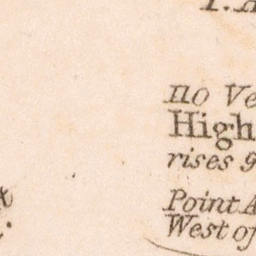 no Ve
High
rises 9
Point A
West of